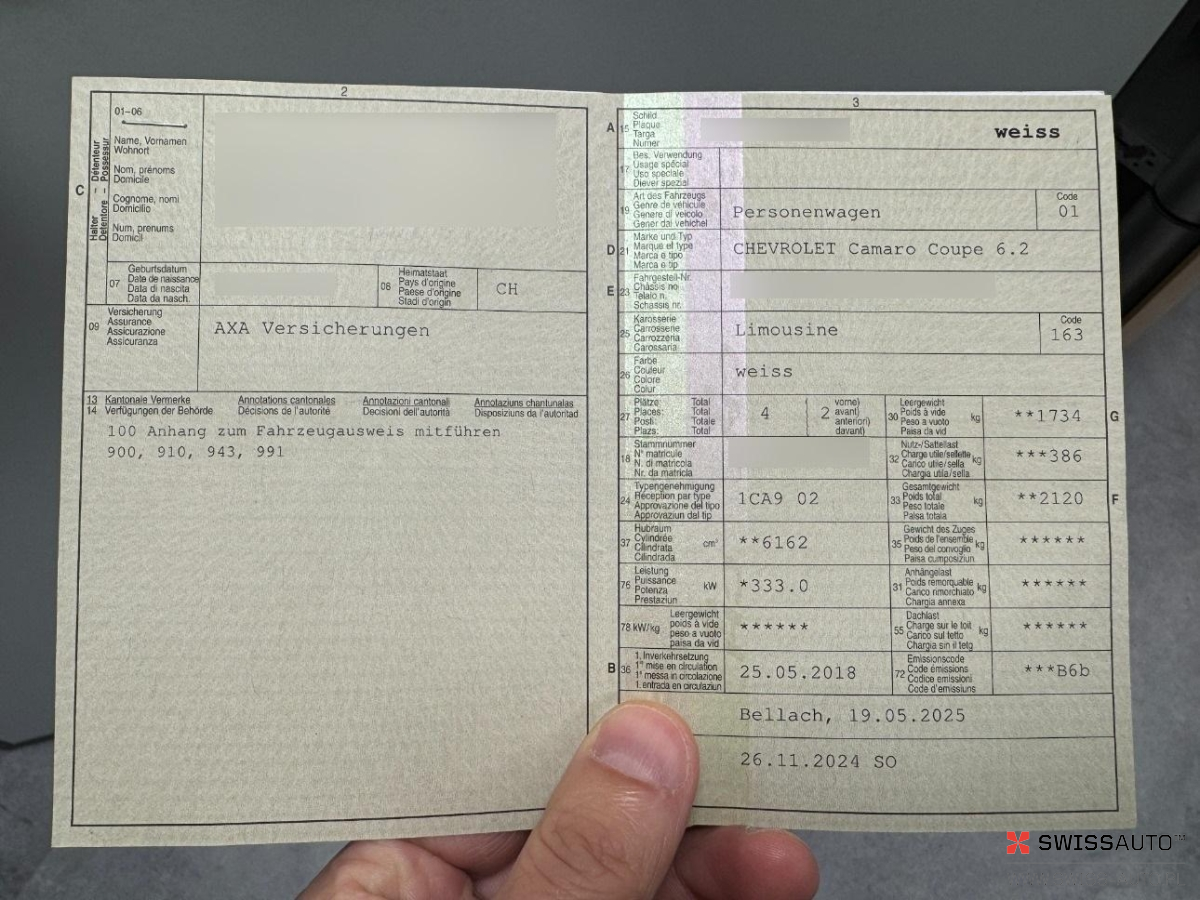 2
01-06
C
Halter – Détenteur
Detentore – Possessur
Name, Vornamen
Wohnort
Nom, prénoms
Domicile
Cognome, nomi
Domicilio
Num, prenums
Domicil
07
Geburtsdatum
Date de naissance
Data di nascita
Data da nasch.
06
Heimatstaat
Pays d'origine
Paese d'origine
Stadi d'origin
CH
09
Versicherung
Assurance
Assicurazione
Assicuranza
AXA Versicherungen
13 Kantonale Vermerke Annotations cantonales Annotazioni cantonali Annotaziuns chantunalas
14 Verfügungen der Behörde Décisions de l'autorité Decisioni dell'autorità Disposiziuns da l'autoritad
100 Anhang zum Fahrzeugausweis mitführen
900, 910, 943, 991
3
A 15
Schild
Plaque
Targa
Numer
weiss
17
Bes. Verwendung
Usage spécial
Uso speciale
Diever spezial
19
Art des Fahrzeugs
Genre de véhicule
Genere di veicolo
Gener dal vehichel
Personenwagen
Code
01
D 21
Marke und Typ
Marque et type
Marca e tipo
Marca e tip
CHEVROLET Camaro Coupe 6.2
E 23
Fahrgestell-Nr.
Châssis no
Telaio n.
Schassis nr.
25
Karosserie
Carrosserie
Carrozzeria
Carossaria
Limousine
Code
163
26
Farbe
Couleur
Colore
Colur
weiss
27
Plätze Total
Places: Total
Posti: Totale
Plazs: Total
4
2
vorne)
avant)
anteriori)
davant)
30
Leergewicht
Poids à vide
Peso a vuoto
Paisa da vid
kg
**1734
G
18
Stammnummer
N° matricule
N. di matricola
Nr. da matricla
32
Nutz-/Sattellast
Charge utile/sellette
Carico utile/sella
Chargia utila/sella
kg
***386
24
Typengenehmigung
Réception par type
Approvazione del tipo
Approvaziun dal tip
1CA9 02
33
Gesamtgewicht
Poids total
Peso totale
Paisa totala
kg
**2120
F
37
Hubraum
Cylindrée
Cilindrata
Cilindrada
cm³
**6162
35
Gewicht des Zuges
Poids de l'ensemble
Peso del convoglio
Paisa cumposiziun
kg
******
76
Leistung
Puissance
Potenza
Prestaziun
kW
*333.0
31
Anhängelast
Poids remorquable
Carico rimorchiato
Chargia annexa
kg
******
78 kW/kg
Leergewicht
poids à vide
peso a vuoto
paisa da vid
******
55
Dachlast
Charge sur le toit
Carico sul tetto
Chargia sin il tetg
kg
******
B 36
1. Inverkehrsetzung
1re mise en circulation
1a messa in circolazione
1. entrada en circulaziun
25.05.2018
72
Emissionscode
Code émissions
Codice emissioni
Code d'emissiuns
***B6b
Bellach, 19.05.2025
26.11.2024 SO
SWISSAUTO™